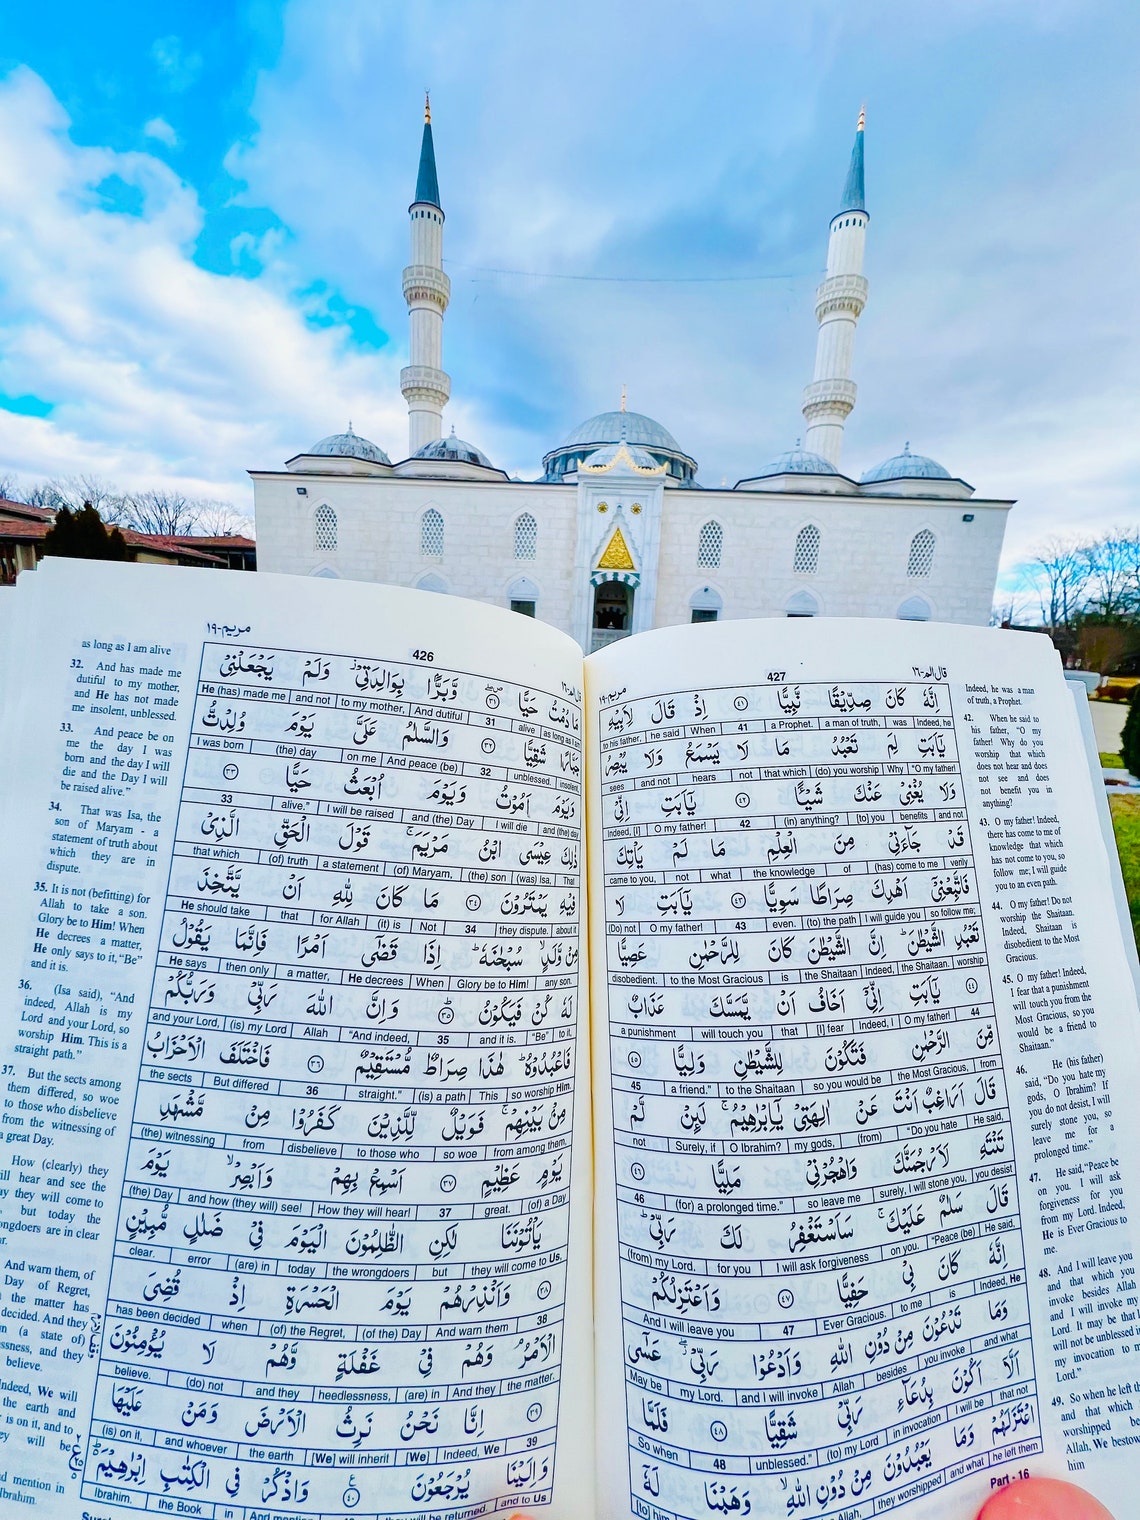 مريم-١٩
426
قال الم-١٦
as long as I am alive
32. And has made me
dutiful to my mother,
and He has not made
me insolent, unblessed.
33. And peace be on
me the day I was
born and the day I will
die and the Day I will
be raised alive."
34. That was Isa, the
son of Maryam - a
statement of truth about
which they are in
dispute.
35. It is not (befitting) for
Allah to take a son.
Glory be to Him! When
He decrees a matter,
He only says to it, "Be"
and it is.
36. (Isa said), "And
indeed, Allah is my
Lord and your Lord, so
worship Him. This is a
straight path."
37. But the sects among
them differed, so woe
to those who disbelieve
from the witnessing of
a great Day.
How (clearly) they
hear and see the
they will come to
but today the
are in clear
And warn them, of
Day of Regret,
the matter has
decided. And they
(a state of)
and they
believe.
We will
the earth and
is on it, and to
will be
mention in
مَا دُمْتُ حَيًّا ٣١ وَّبَرًّا بِوَالِدَتِيْ وَلَمْ يَجْعَلْنِيْ
He (has) made me and not to my mother, And dutiful 31 alive as long as I am
جَبَّارًا شَقِيًّا ٣٢ وَالسَّلٰمُ عَلَيَّ يَوْمَ وُلِدْتُّ
I was born (the) day on me And peace (be) 32 unblessed. insolent,
وَيَوْمَ اَمُوْتُ وَيَوْمَ اُبْعَثُ حَيًّا ٣٣
33 alive." I will be raised and (the) Day I will die and (the) day
ذٰلِكَ عِيْسَى ابْنُ مَرْيَمَ قَوْلَ الْحَقِّ الَّذِيْ
that which (of) truth a statement (of) Maryam, (the) son (was) Isa, That
فِيْهِ يَمْتَرُوْنَ ٣٤ مَا كَانَ لِلّٰهِ اَنْ يَّتَّخِذَ
He should take that for Allah (it) is Not 34 they dispute. about it
مِنْ وَّلَدٍ سُبْحٰنَهٗ اِذَا قَضٰٓى اَمْرًا فَاِنَّمَا يَقُوْلُ
He says then only a matter, He decrees When Glory be to Him! any son.
لَهٗ كُنْ فَيَكُوْنُ ٣٥ وَاِنَّ اللّٰهَ رَبِّيْ وَرَبُّكُمْ
and your Lord, (is) my Lord Allah "And indeed, 35 and it is. "Be" to it,
فَاعْبُدُوْهُ هٰذَا صِرَاطٌ مُّسْتَقِيْمٌ ٣٦ فَاخْتَلَفَ الْاَحْزَابُ
the sects But differed 36 straight." (is) a path This so worship Him.
مِنْ بَيْنِهِمْ فَوَيْلٌ لِّلَّذِيْنَ كَفَرُوْا مِنْ مَّشْهَدِ
(the) witnessing from disbelieve to those who so woe from among them,
يَوْمٍ عَظِيْمٍ ٣٧ اَسْمِعْ بِهِمْ وَاَبْصِرْ يَوْمَ
(the) Day and how (they will) see! How they will hear! 37 great. (of) a Day
يَاْتُوْنَنَا لٰكِنِ الظّٰلِمُوْنَ الْيَوْمَ فِيْ ضَلٰلٍ مُّبِيْنٍ
clear. error (are) in today the wrongdoers but they will come to Us,
٣٨ وَاَنْذِرْهُمْ يَوْمَ الْحَسْرَةِ اِذْ قُضِيَ
has been decided when (of) the Regret, (of the) Day And warn them 38
الْاَمْرُ وَهُمْ فِيْ غَفْلَةٍ وَّهُمْ لَا يُؤْمِنُوْنَ
believe. (do) not and they heedlessness, (are) in And they the matter.
٣٩ اِنَّا نَحْنُ نَرِثُ الْاَرْضَ وَمَنْ عَلَيْهَا
(is) on it, and whoever the earth [We] will inherit [We] Indeed, We 39
وَاِلَيْنَا يُرْجَعُوْنَ ٤٠ وَاذْكُرْ فِي الْكِتٰبِ اِبْرٰهِيْمَ
Ibrahim. the Book in And mention they will be returned. and to Us
مريم-١٩
427
قال الم-١٦
اِنَّهٗ كَانَ صِدِّيْقًا نَّبِيًّا ٤١ اِذْ قَالَ لِاَبِيْهِ
to his father, he said When 41 a Prophet. a man of truth, was Indeed, he
يٰٓاَبَتِ لِمَ تَعْبُدُ مَا لَا يَسْمَعُ وَلَا يُبْصِرُ
sees and not hears not that which (do) you worship Why "O my father!
وَلَا يُغْنِيْ عَنْكَ شَيْـًٔا ٤٢ يٰٓاَبَتِ اِنِّيْ
Indeed, [I] O my father! 42 (in) anything? [to] you benefits and not
قَدْ جَآءَنِيْ مِنَ الْعِلْمِ مَا لَمْ يَاْتِكَ
came to you, not what the knowledge of (has) come to me verily
فَاتَّبِعْنِيْٓ اَهْدِكَ صِرَاطًا سَوِيًّا ٤٣ يٰٓاَبَتِ لَا
(Do) not O my father! 43 even. (to) the path I will guide you so follow me;
تَعْبُدِ الشَّيْطٰنَ اِنَّ الشَّيْطٰنَ كَانَ لِلرَّحْمٰنِ عَصِيًّا
disobedient. to the Most Gracious is the Shaitaan Indeed, the Shaitaan. worship
٤٤ يٰٓاَبَتِ اِنِّيْٓ اَخَافُ اَنْ يَّمَسَّكَ عَذَابٌ
a punishment will touch you that [I] fear Indeed, I O my father! 44
مِّنَ الرَّحْمٰنِ فَتَكُوْنَ لِلشَّيْطٰنِ وَلِيًّا ٤٥
45 a friend." to the Shaitaan so you would be the Most Gracious, from
قَالَ اَرَاغِبٌ اَنْتَ عَنْ اٰلِهَتِيْ يٰٓاِبْرٰهِيْمُ لَئِنْ لَّمْ
not Surely, if O Ibrahim? my gods, (from) "Do you hate He said,
تَنْتَهِ لَاَرْجُمَنَّكَ وَاهْجُرْنِيْ مَلِيًّا ٤٦
46 (for) a prolonged time." so leave me surely, I will stone you, you desist
قَالَ سَلٰمٌ عَلَيْكَ سَاَسْتَغْفِرُ لَكَ رَبِّيْ
(from) my Lord. for you I will ask forgiveness on you. "Peace (be) He said,
اِنَّهٗ كَانَ بِيْ حَفِيًّا ٤٧ وَاَعْتَزِلُكُمْ
And I will leave you 47 Ever Gracious. to me is Indeed, He
وَمَا تَدْعُوْنَ مِنْ دُوْنِ اللّٰهِ وَاَدْعُوْا رَبِّيْ عَسٰٓى
May be my Lord. and I will invoke Allah besides you invoke and what
اَلَّآ اَكُوْنَ بِدُعَآءِ رَبِّيْ شَقِيًّا ٤٨ فَلَمَّا
So when 48 unblessed." (to) my Lord in invocation I will be that not
اعْتَزَلَهُمْ وَمَا يَعْبُدُوْنَ مِنْ دُوْنِ اللّٰهِ وَهَبْنَا لَهٗٓ
[to] him Allah, they worshipped and what he left them
Part - 16
Indeed, he was a man
of truth, a Prophet.
42. When he said to
his father, "O my
father! Why do you
worship that which
does not hear and does
not see and does
not benefit you in
anything?
43. O my father! Indeed,
there has come to me of
knowledge that which
has not come to you, so
follow me; I will guide
you to an even path.
44. O my father! Do not
worship the Shaitaan.
Indeed, Shaitaan is
disobedient to the Most
Gracious.
45. O my father! Indeed,
I fear that a punishment
will touch you from the
Most Gracious, so you
would be a friend to
Shaitaan."
46. He (his father)
said, "Do you hate my
gods, O Ibrahim? If
you do not desist, I will
surely stone you, so
leave me for a
prolonged time."
47. He said, "Peace be
on you. I will ask
forgiveness for you
from my Lord. Indeed,
He is Ever Gracious to
me.
48. And I will leave you
and that which you
invoke besides Allah
and I will invoke my
Lord. It may be that I
will not be unblessed in
my invocation to my
Lord."
49. So when he left
and that which
worshipped
Allah, We
him